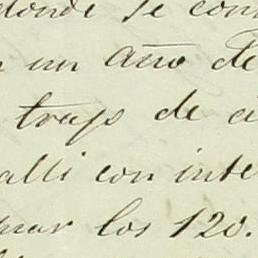 donde se con
n un año de
trajo de a
alli con inte
mar los 120.